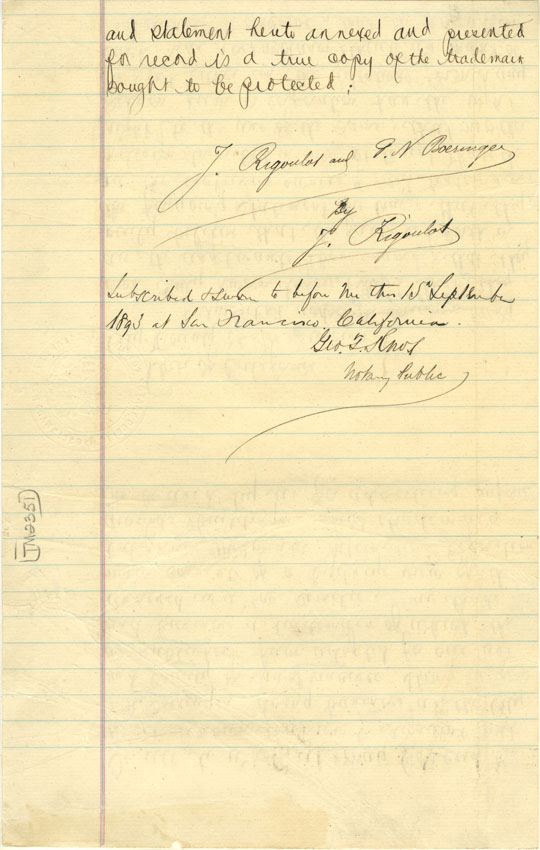 and statement hereto annexed and presented
for record is a true copy of the trademark
sought to be protected;
J. Rigoulot and P. N. Boeringer
by
J. Rigoulot
Subscribed & Sworn to before me this 15th September
1893 at San Francisco, California.
Geo. T. Knox
Notary Public
TM2351